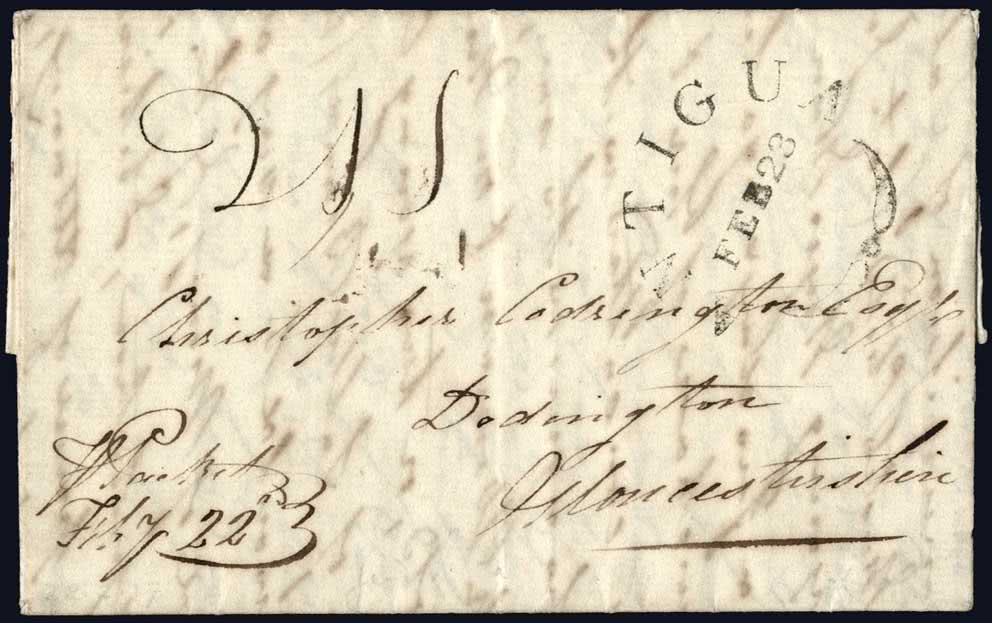 ANTIGUA
FEB 23
Christopher Codrington Esqr
Dodington
Gloucestershire
Pr Packet
Feby 22nd